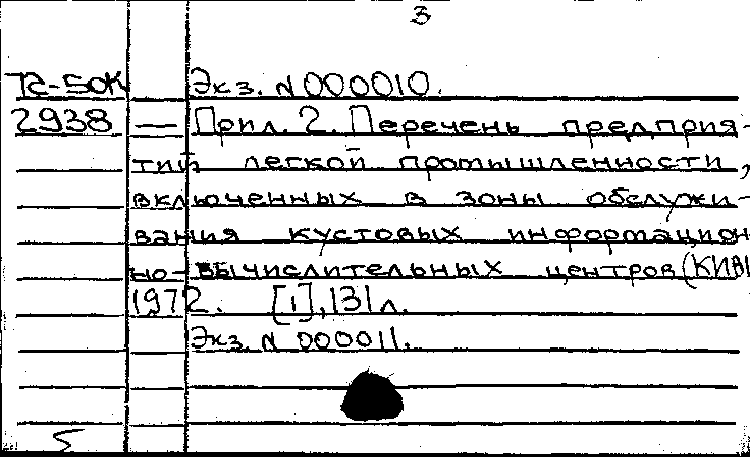 3
ТС-50К Экз. N 000010.
2938 — Прил. 2. Перечень предприя-
тий легкой промышленности,
включенных в зоны обслужи-
вания кустовых информацион
но-вычислительных центров (КИВЦ
1972. [1], 131 л.
Экз. N 000011.
5